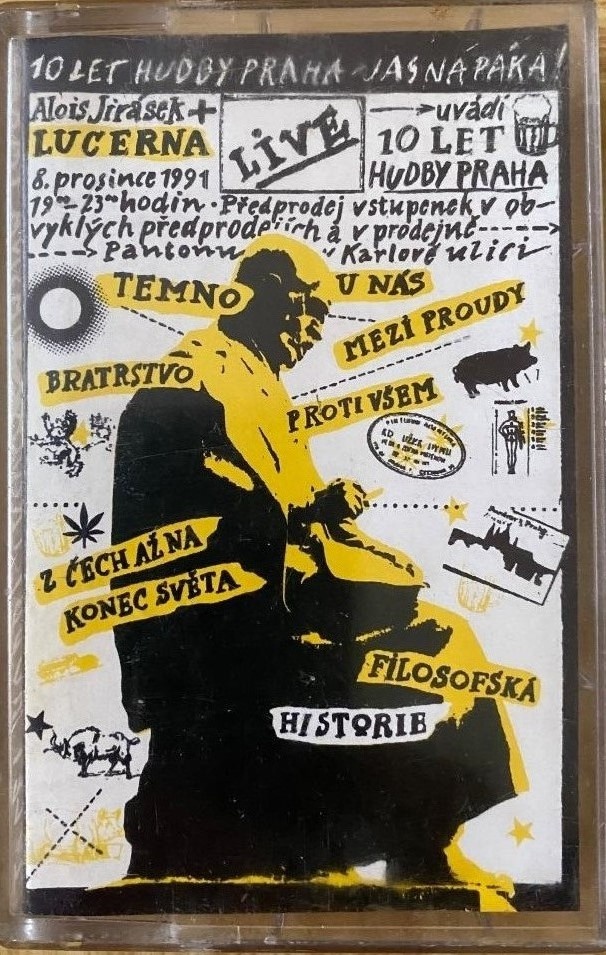 10 LET HUDBY PRAHA - JASNÁ PÁKA!
Alois Jirásek +
LUCERNA
LIVE
uvádí
10 LET
HUDBY PRAHA
8. prosince 1991
19⁰⁰-23⁰⁰ hodin · Předprodej vstupenek v ob-
vyklých předprodejích a v prodejně
Pantonu v Karlově ulici
TEMNO
U NÁS
MEZI PROUDY
BRATRSTVO
PROTI VŠEM
Z ČECH AŽ NA
KONEC SVĚTA
FILOSOFSKÁ
HISTORIE